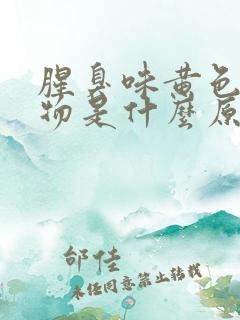 腥臭味黄色
物是什麽原
邰佳
未经同意禁止转载